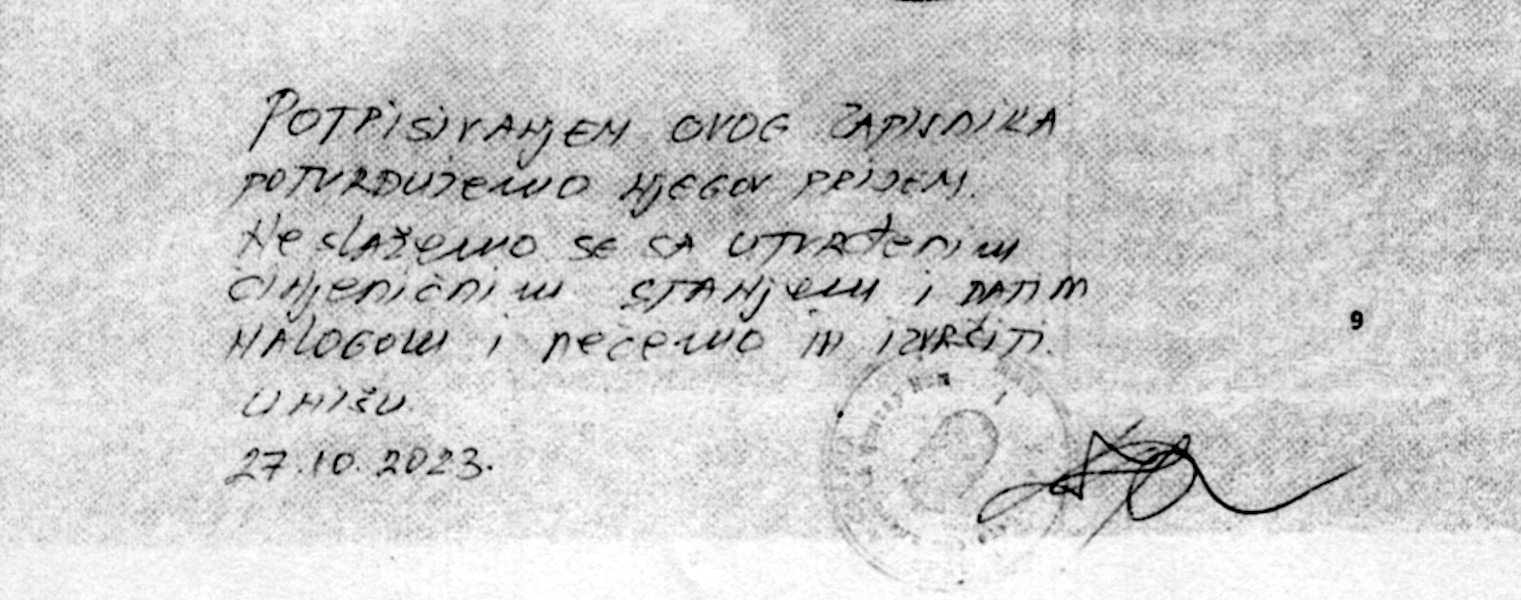 POTPISIVANJEM OVOG ZAPISNIKA
POTVRĐUJEMO NJEGOV PRIJEM.
Ne slažemo SE SA UTVRđenim
činjeničnim STANJem i DATIM
NALOGOM i nećemo IH IZVRŠITI.
U NIŠU
27.10.2023.
9